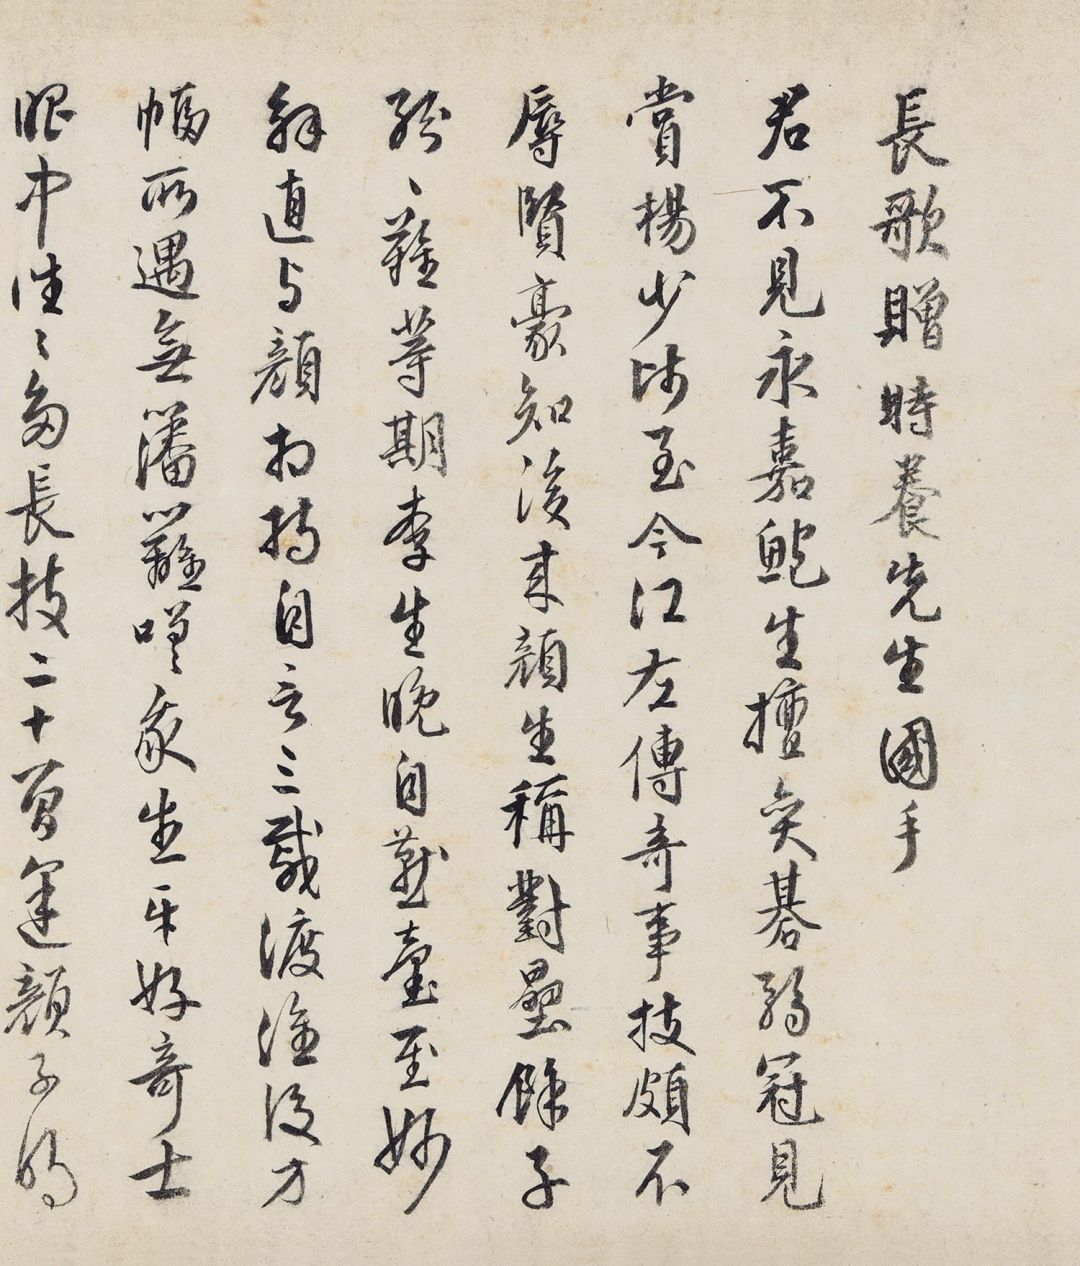 長歌贈時養先生國手
君不見永嘉鮑生擅奕碁弱冠見
賞楊少師至今江左傳奇事技頗不
辱賢豪知後來顏生稱對壘餘子
紛〻難等期李生晚自燕臺至妙
解直与顏相持自言三載渡淮後方
幅所遇無藩籬嗟余生平好奇士
眼中往〻多長技二十曾逢顏子的